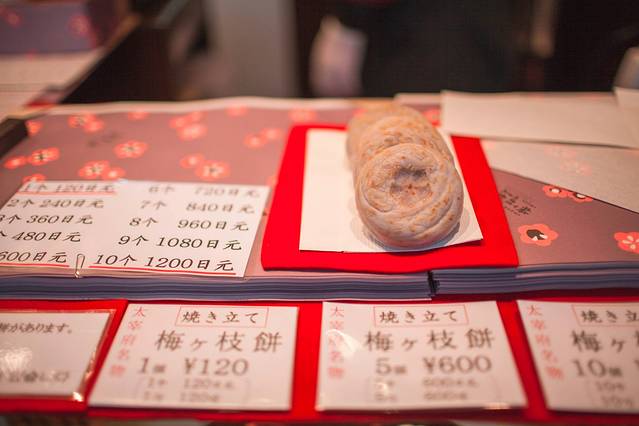 1个 120日元
2个 240日元
3个 360日元
个 480日元
600日元
6个 720日元
7个 840日元
8个 960日元
9个 1080日元
10个 1200日元
があります。
太宰府名物
焼き立て
梅ヶ枝餅
1個 ¥120
太宰府名物
焼き立て
梅ヶ枝餅
5個 ¥600
太宰府名物
焼き立
梅ヶ
10個